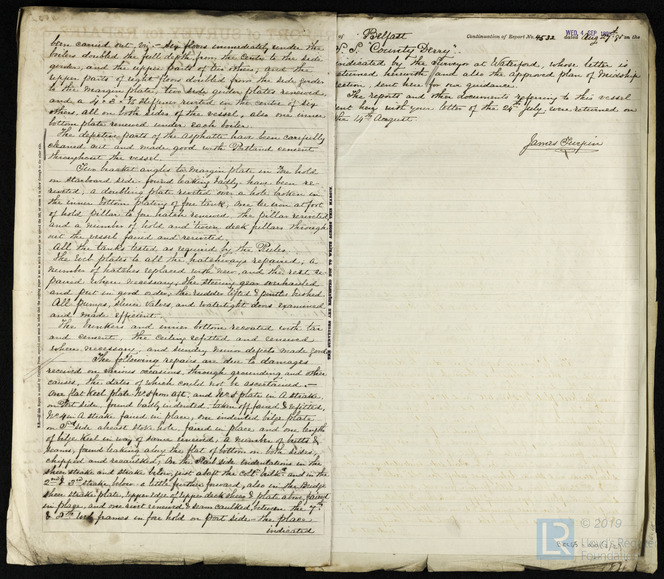 been carried out, viz:- Six floors immediately under the
boilers doubled the full depth from the centre to the side
girder, and the upper parts of ten others, and the
upper parts of eight floors doubled from the side girder
to the margin plate, two side girder plates renewed,
and a 4" stiffener riveted in the centre of six
others, all on both sides of the vessel, also one inner
bottom plate renewed under each boiler.
The defective parts of the Asphalte have been carefully
cleaned out and made good with Portland cement
throughout the vessel.
bracket angles to margin plate in Fore hold
on starboard side found leaking badly have been re-
riveted, a doubling plate riveted over a hole broken in
the inner bottom plating of fore tank, one tee iron at foot
of hold pillar to fore hatch renewed, the pillar reriveted
and a number of hold and tween deck pillars through
out the vessel faired and reriveted.
All the tanks tested as required by the Rules.
The web plates to all the hatchways repaired, a
number of hatches replaced with new, and the rest re-
paired where necessary, the steering gear overhauled
and put in good order, the rudder lifted & pintles bushed.
All pumps, sluice valves, and watertight doors examined
and made efficient.
The bunkers and inner bottom recoated with tar
and cement, the ceiling refitted and renewed
where necessary, and sundry minor defects made good.
The following repairs are due to damages
received on various occasions, through grounding and other
causes, the dates of which could not be ascertained:-
One flat keel plate No. 5 from aft, and No. 5 plate in A strake
on Port side, found badly indented, taken off faired & refitted,
No. 4 in A strake faired in place, one indented bilge plate
on side abreast stoke hole, faired in place and one length
of bilge keel in way of same renewed. A number of butts &
seams, found leaking along the flat of bottom on both sides,
chipped and recaulked; On the Starb side indentations in the
sheer strake and strake below, just abaft the coll. bulk. and in the
2nd & 3rd strakes below a little further forward, also in the Bridge
sheer strake plate, upper edge of upper deck sheer & plate above, faired
in place, and one rivet renewed & seam caulked, between the 7th
& 8th web frames in fore hold on Port side the plate
indicated
of Belfast Continuation of Report No. 4532 dated Aug 29th 8 on the
S.S. "County Derry".
indicated by the Surveyor at Waterford, whose letter is
returned herewith, and also the approved plan of Midship
section, sent here for our guidance.
The reports and other documents referring to this vessel
sent here with your letter of the 24th July were returned on
the 14th August.
James Turpin
© 2019
Lloyd's Register
Foundation